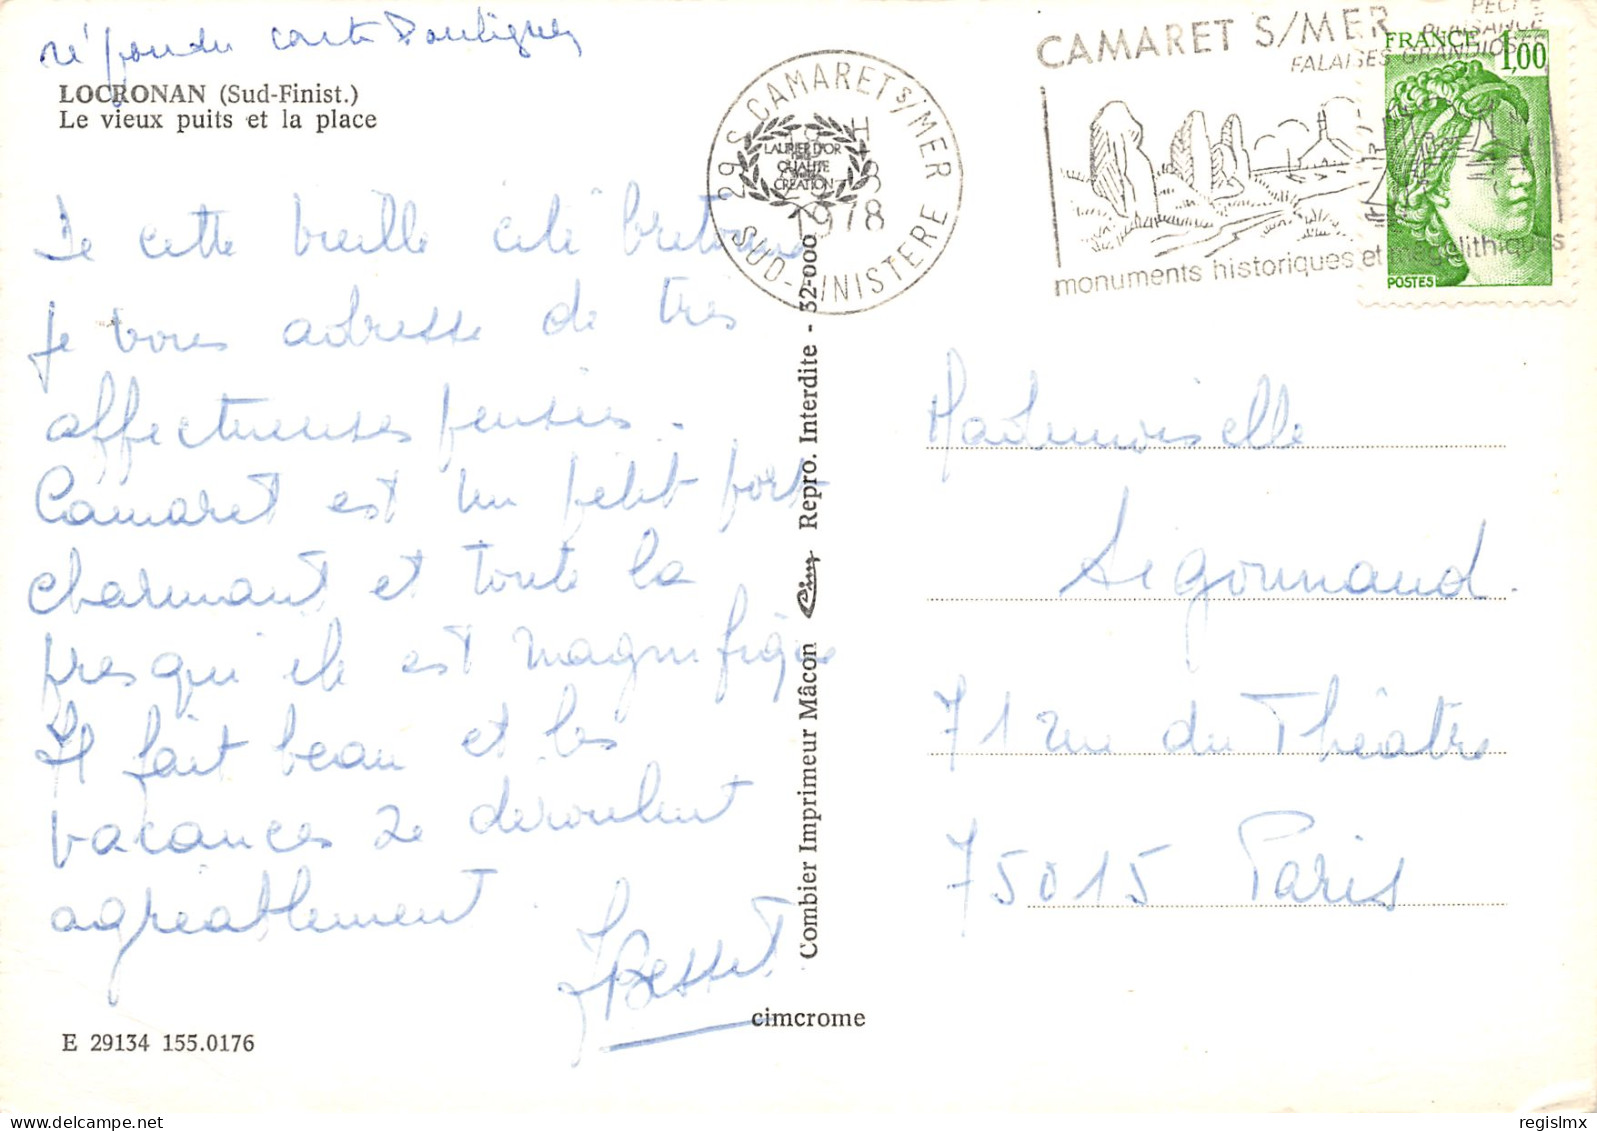 répondu carte
LOCRONAN (Sud-Finist.)
Le vieux puits et la place
De cette vieille cité bretonne
je vous adresse de très
affectueuses pensées.
Camaret est un petit port
charmant et toute la
presqu'ile est magnifique
Il fait beau et les
vacances se déroulent
agréablement.
JBesset
E 29134 155.0176
cimcrome
Combier Imprimeur Mâcon Cim Repro. Interdite - 32-000
29 S CAMARET S/MER
H
1978
SUD-FINISTERE
LAURIER D'OR
QUALITE
CREATION
CAMARET S/MER
PLAISANCE
FALAISES GRANDIOSES
monuments historiques et mégalithiques
FRANCE 1,00
POSTES
Mademoiselle
Segonnaud.
71 rue du Théâtre
75015 Paris
regislmx